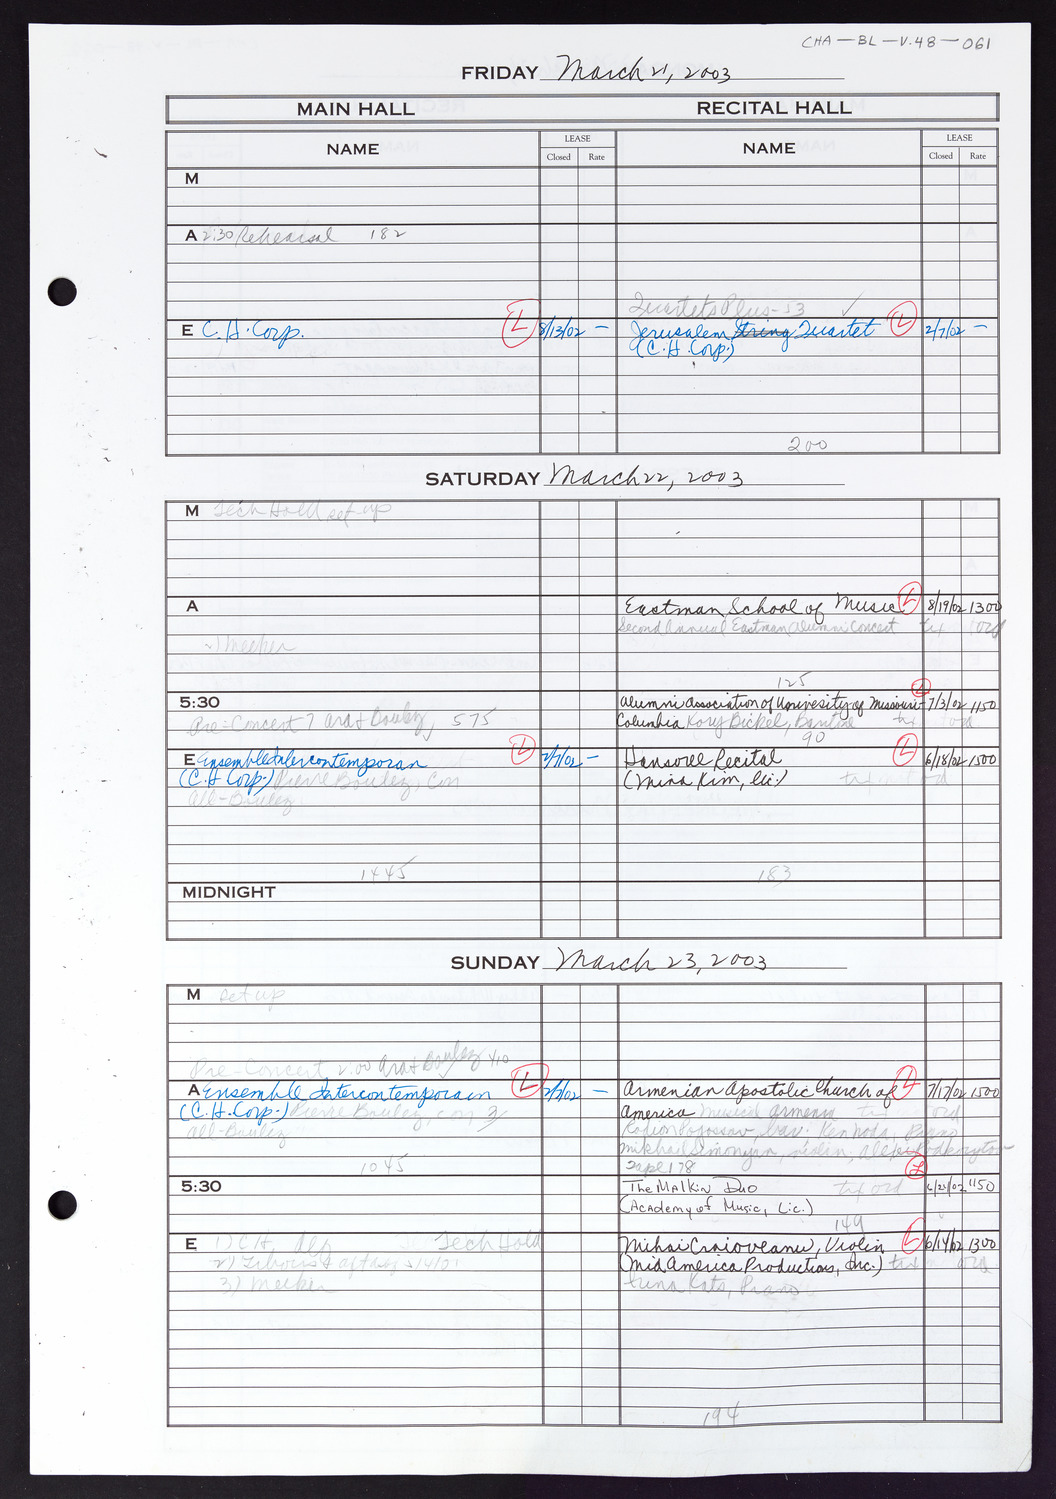 CHA-BL-V.48-061
FRIDAY March 21, 2003
MAIN HALL RECITAL HALL
NAME LEASE Closed Rate NAME LEASE Closed Rate
M
A 2:30 Rehearsal 182
Quartets Plus - 53 ✓
E C.H. Corp. L 8/13/02 — Jerusalem String Quartet L 2/7/02 —
(C.H. Corp.)
200
SATURDAY March 22, 2003
M Tech Hold set up
A Eastman School of Music L 8/19/02 1300
Second Annual Eastman Alumni Concert
Meeker
125
5:30 Alumni Association of University of Missouri L 7/3/02 1150
Pre-Concert 7 Ara + Boulez, 575 Columbia Kory Bickel, Baritone
90
E Ensemble Intercontemporain L 2/7/02 — Hansorel Recital L 6/18/02 1500
(C.H. Corp.) Pierre Boulez, Con (Mina Kim, lic.)
All-Boulez
1445 183
MIDNIGHT
SUNDAY March 23, 2003
M set up
Pre-Concert, 2:00 Ara + Boulez 410
A Ensemble Intercontemporain L 2/7/02 — Armenian Apostolic Church of L 7/17/02 1500
(C.H. Corp.) Pierre Boulez, con America Musical Armenia
All-Boulez
Mikhail Simonyan, violin,
1045 178
5:30 The Malkin Duo L 1150
(Academy of Music, Lic.)
149
E 1) C.H. Tech Hold Mihai Craioveanu, Violin L 6/14/02 1300
2) (MidAmerica Productions, Inc.)
3) Meeker Kats, Piano
194